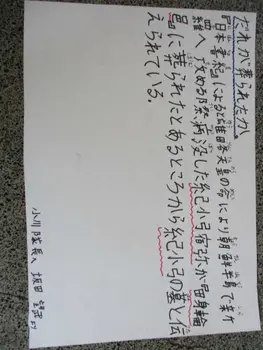 だれが葬られたか
『日本書紀』によると雄略天皇の命により朝鮮半島で新
羅へ攻める際、病没した紀小弓宿祢が田身輪
邑に葬られたとあるところから紀小弓の墓と伝
えられている。
小川隊長へ 坂田